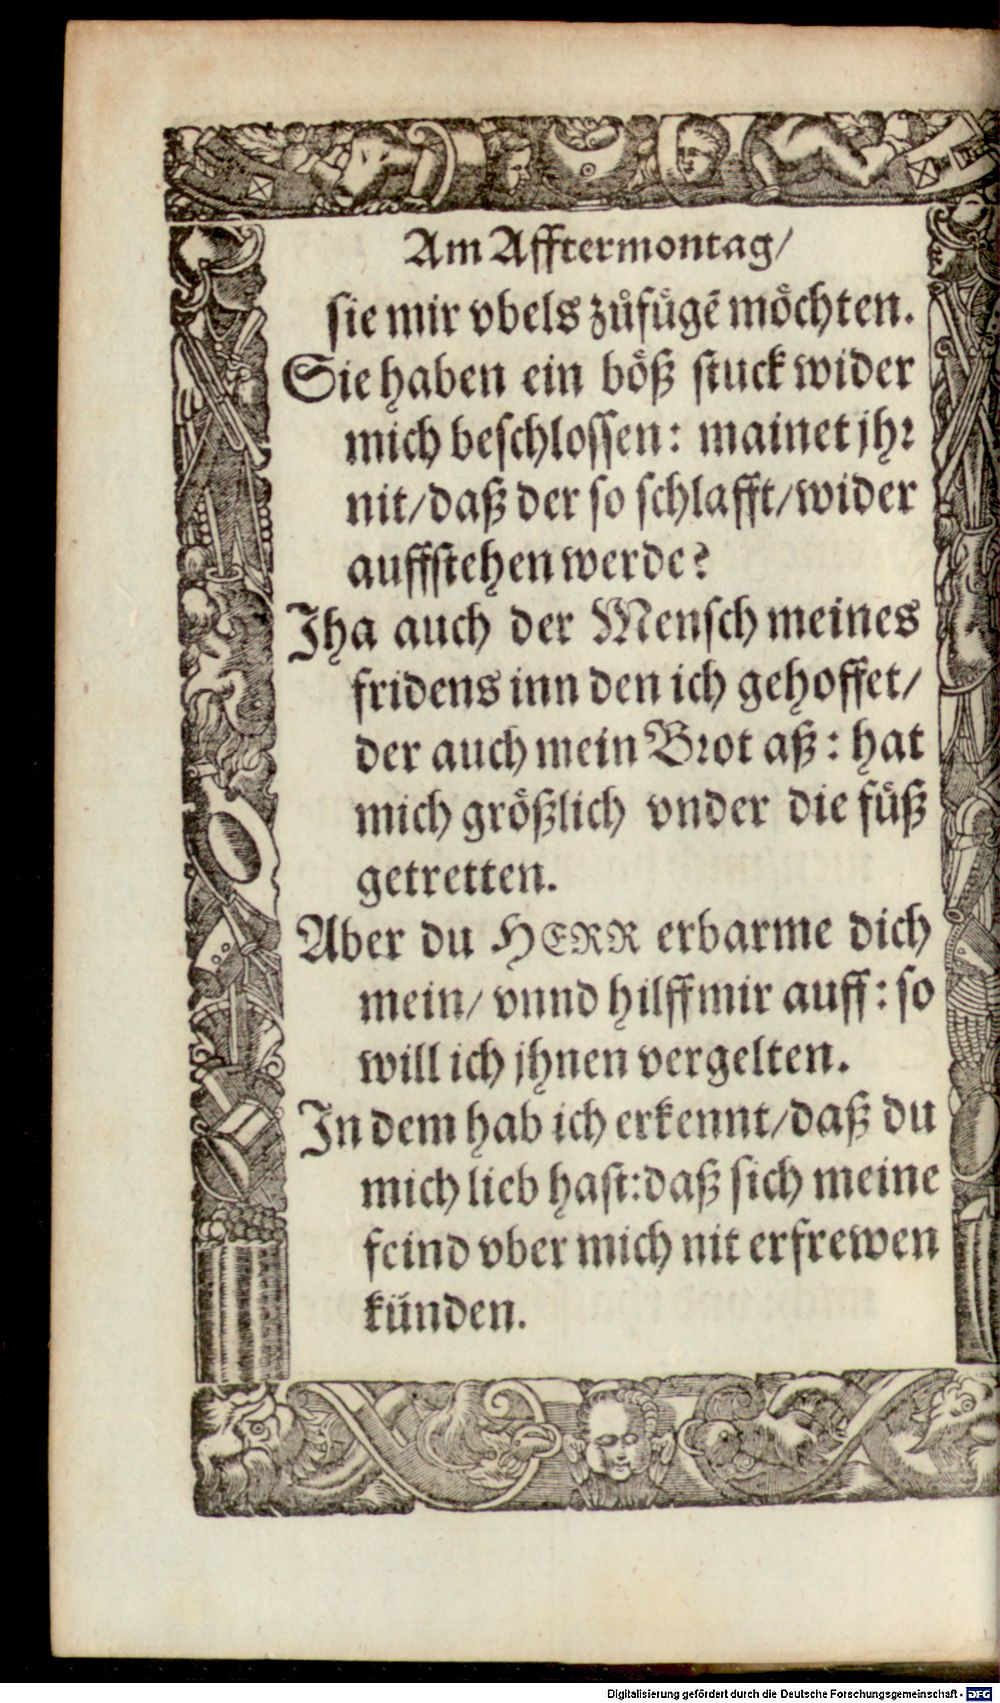 Am Afftermontag/
sie mir vbels zuͦfuͤgē moͤchten.
Sie haben ein boͤß stuck wider
mich beschlossen: mainet jhꝛ
nit/daß der so schlafft/wider
auffstehen werde?
Jha auch der Mensch meines
fridens inn den ich gehoffet/
der auch mein Bꝛot aß: hat
mich groͤßlich vnder die fuͤß
getretten.
Aber du HERR erbarme dich
mein/ vnnd hilff mir auff: so
will ich jhnen vergelten.
In dem hab ich erkennt/daß du
mich lieb hast: daß sich meine
feind vber mich nit erfrewen
künden.
Digitalisierung gefördert durch die Deutsche Forschungsgemeinschaft - DFG